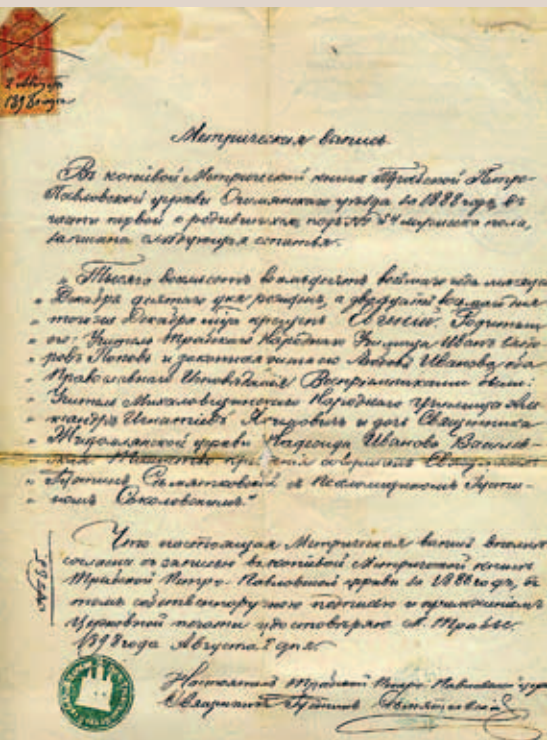 2 Августа
1898 года
Метрическая запись.
Въ копiевой Метрической книгѣ Трабской Петро-
Павловской церкви Ошмянскаго уѣзда за 1888 годъ, въ
части первой о родившихся, подъ № 54 мужеска пола,
записана слѣдующая статья:
„Тысяча восемьсотъ восемьдесятъ восьмаго года мѣсяца
„Декабря девятаго дня рожденъ, а двадцать восьмаго дня
„того же Декабря м-ца крещенъ Родители
„его: Учитель Трабскаго Народнаго Училища Иванъ
„ровъ Поповъ и законная жена его Любовь Иванова, оба
„Православнаго Исповѣданiя. Воспрiемниками были:
„Учитель Михаловщинскаго Народнаго Училища Але-
„ксандръ Игнатiевъ и дочь Священника
„Жидомлянской церкви Надежда Иванова
„ская. Таинство крещенiя совершалъ Священникъ
„ съ Псаломщикомъ
„номъ Соколовскимъ.“
Что настоящая Метрическая запись вполнѣ
согласна съ записью въ копiевой Метрической книгѣ
Трабской Петро-Павловской церкви за 1888 годъ, въ
томъ собственноручною подписью и приложенiемъ
Церковной печати удостовѣряю. М. Трабы.
1898 года Августа 2 дня.
Настоятель Трабской Петро-Павловской церкви
Священникъ